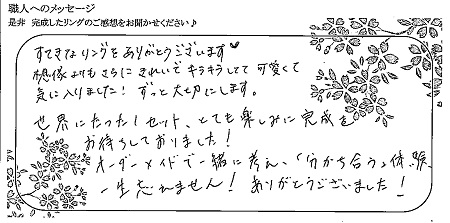 職人へのメッセージ
是非 完成したリングのご感想をお聞かせください♪
すてきなリングをありがとうございます♥
想像よりもさらにきれいでキラキラしてて可愛くて
気に入りました！ずっと大切にします。
世界にたった1セット、とても楽しみに完成を
お待ちしておりました！
オーダーメイドで一緒に考え、「分かち合う」体験、
一生忘れません！ありがとうございました！